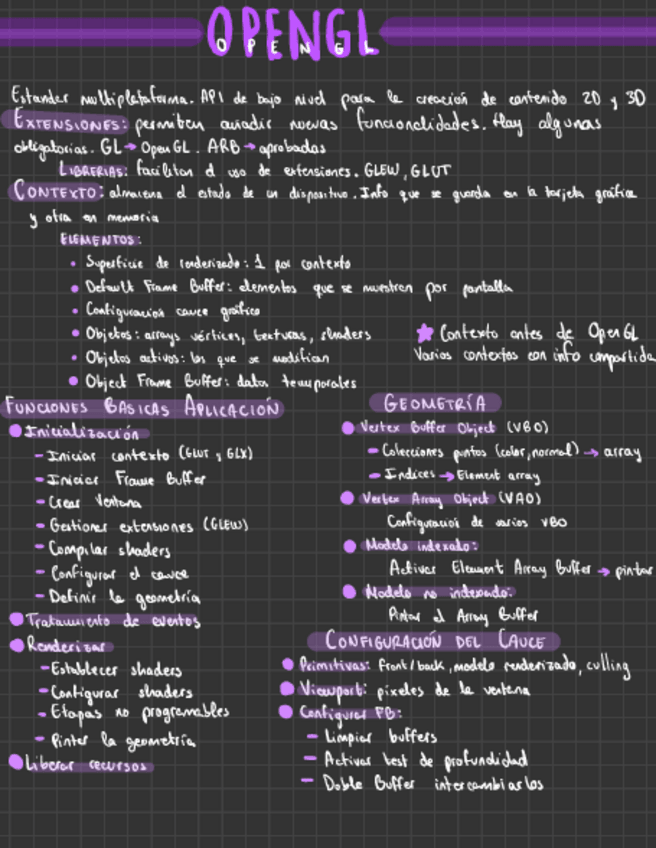 OPENGL
OPENGL
Estander multiplataforma. API de bajo nivel para la creación de contenido 2D y 3D
EXTENSIONES: permiten añadir nuevas funcionalidades. Hay algunas
obligatorias. GL→OpenGL. ARB→aprobadas
LIBRERIAS: facilitan el uso de extensiones. GLEW, GLUT
CONTEXTO: almacena el estado de un dispositivo. Info que se guarda en la tarjeta gráfica
y otra en memoria
ELEMENTOS:
• Superficie de renderizado: 1 por contexto
• Default Frame Buffer: elementos que se muestran por pantalla
• Configuración cauce gráfico
• Objetos: arrays vértices, texturas, shaders
• Objetos activos: los que se modifican
• Object Frame Buffer: datos temporales
★ Contexto antes de OpenGL
Varios contextos con info compartida
FUNCIONES BASICAS APLICACIÓN
• Inicialización
- Iniciar contexto (GLUT y GLX)
- Iniciar Frame Buffer
- Crear Ventana
- Gestionar extensiones (GLEW)
- Compilar shaders
- Configurar el cauce
- Definir la geometría
• Tratamiento de eventos
• Renderizar
- Establecer shaders
- Configurar shaders
- Etapas no programables
- Pintar la geometría
• Liberar recursos
GEOMETRÍA
• Vertex Buffer Object (VBO)
- Colecciones puntos (color, normal) → array
- Indices → Element array
• Vertex Array Object (VAO)
Configuración de varios VBO
• Modelo indexado:
Activar Element Array Buffer → pintar
• Modelo no indexado:
Pintar el Array Buffer
CONFIGURACIÓN DEL CAUCE
• Primitivas: front/back, modelo renderizado, culling
• Viewport: pixeles de la ventana
• Configurar FB:
- Limpiar buffers
- Activar test de profundidad
- Doble Buffer intercambiarlos